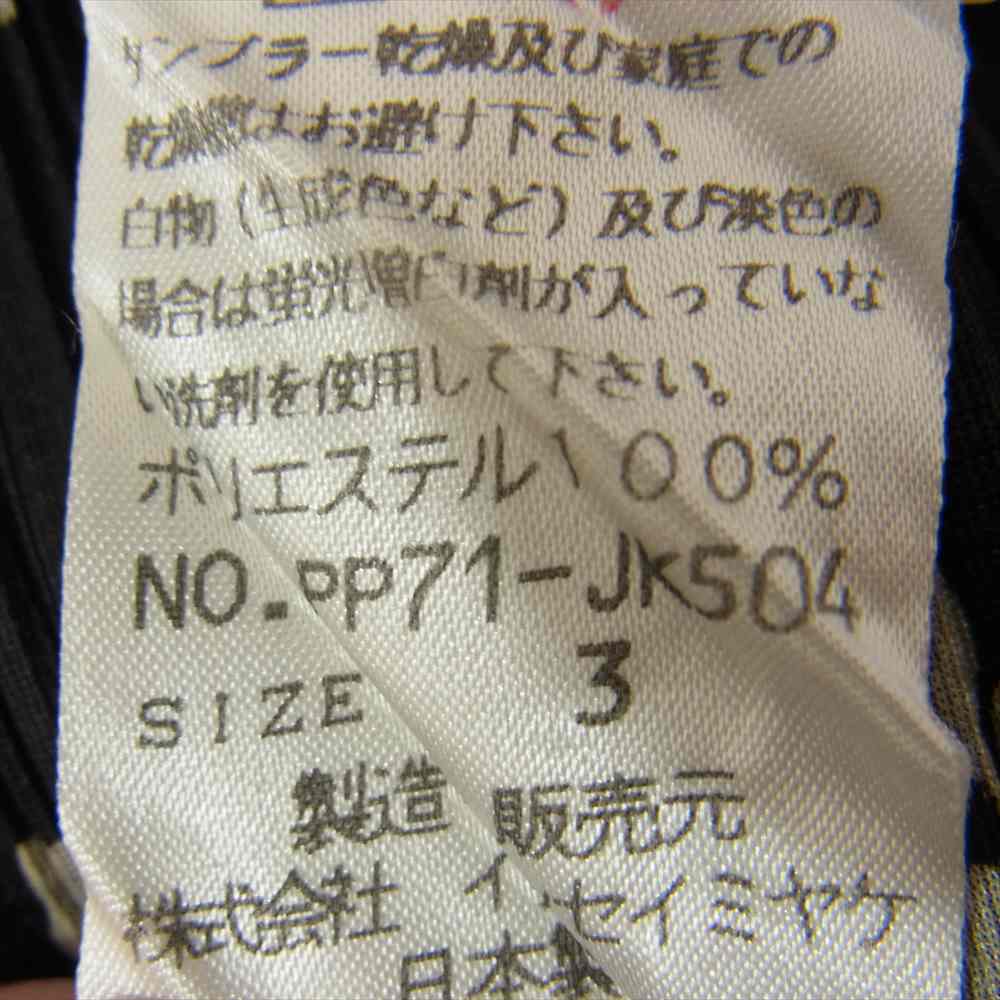 タンブラー乾燥及び家庭での
乾燥機はお避け下さい。
白物(生成色など)及び淡色の
場合は蛍光増白剤が入っていな
い洗剤を使用して下さい。
ポリエステル100%
NO.PP71-JK504
SIZE 3
製造 販売元
株式会社 イッセイミヤケ
日本製